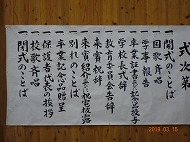 式次第
一 開式のことば
一 国歌斉唱
一 学事報告
一 卒業証書授与
一 学校長式辞
一 教育委員会告辞
一 来賓祝辞
一 来賓紹介・祝電披露
一 別れのことば
一 卒業記念品贈呈
一 保護者代表の挨拶
一 校歌斉唱
一 閉式のことば
2019.03.16